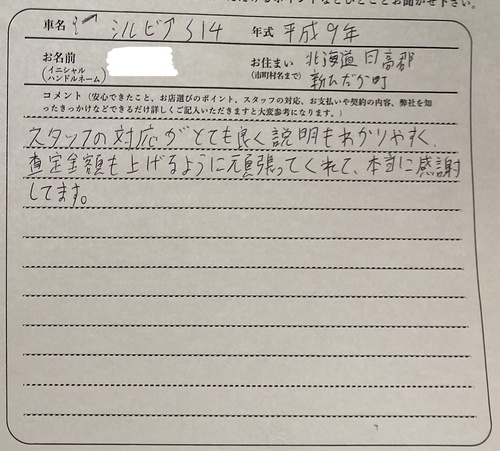 車名 シルビア S14 年式 平成9年
お名前
(イニシャル
ハンドルネーム)
お住まい 北海道日高郡
(市町村名まで) 新ひだか町
コメント(安心できたこと、お店選びのポイント、スタッフの対応、お支払いや契約の内容、弊社を知
ったきっかけなどできるだけ詳しくご記入いただきますと大変参考になります。)
スタッフの対応がとても良く説明もわかりやすく、
査定金額も上げるように頑張ってくれて、本当に感謝
してます。